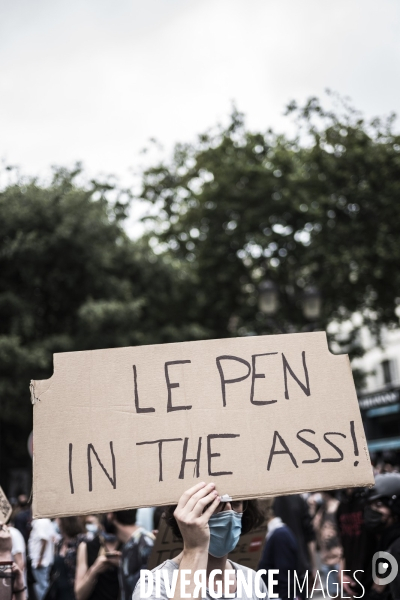 LE PEN
IN THE ASS!
DIVERGENCE IMAGES